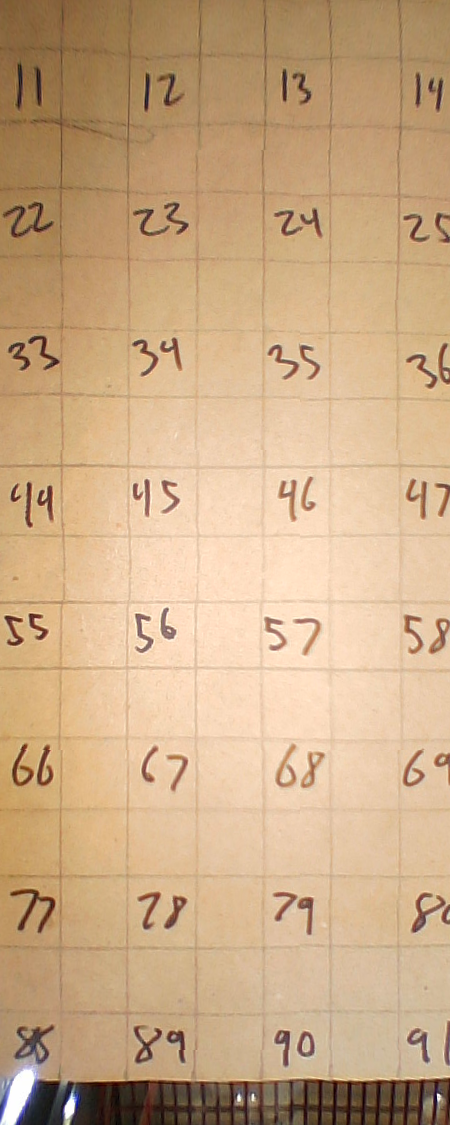 11 12 13 14
22 23 24 25
33 34 35 36
44 45 46 47
55 56 57 58
66 67 68 69
77 78 79 80
88 89 90 91